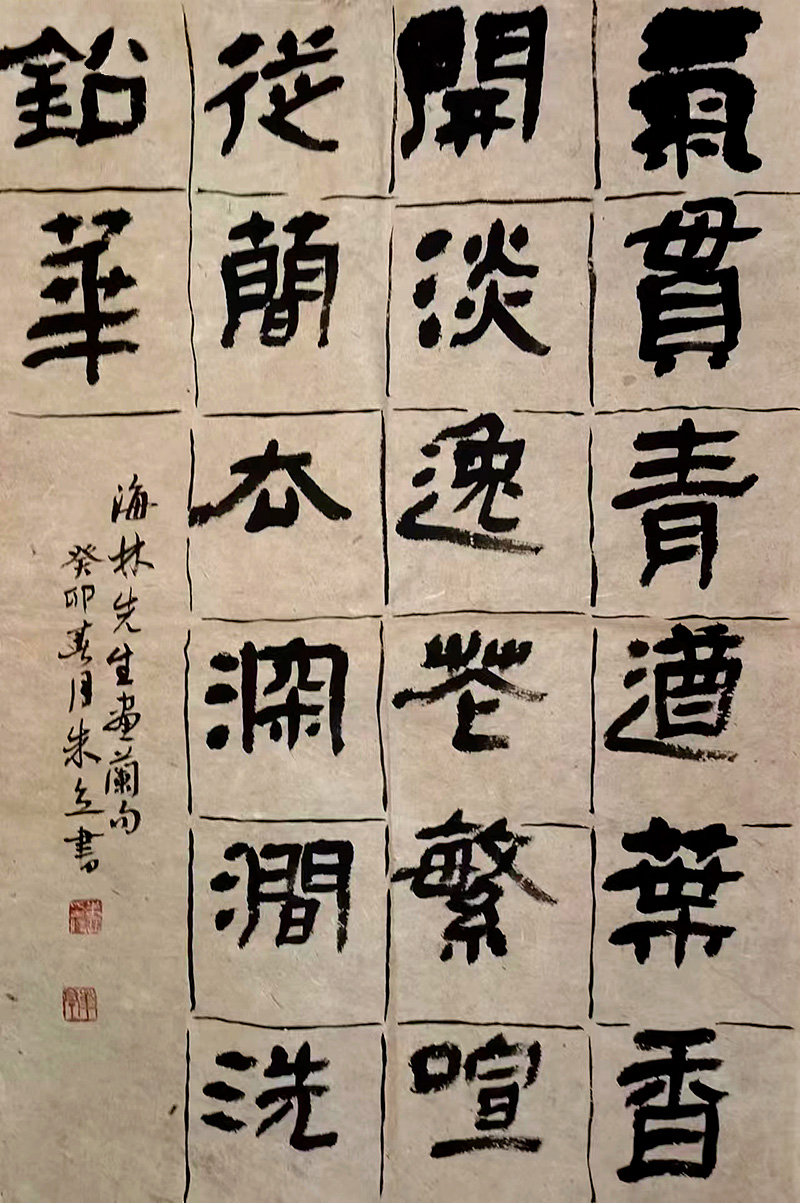 氣貫青遒葉香
開淡逸花繁喧
從簡去深澗洗
鉛華
海林先生畫蘭句
癸卯春月朱立書